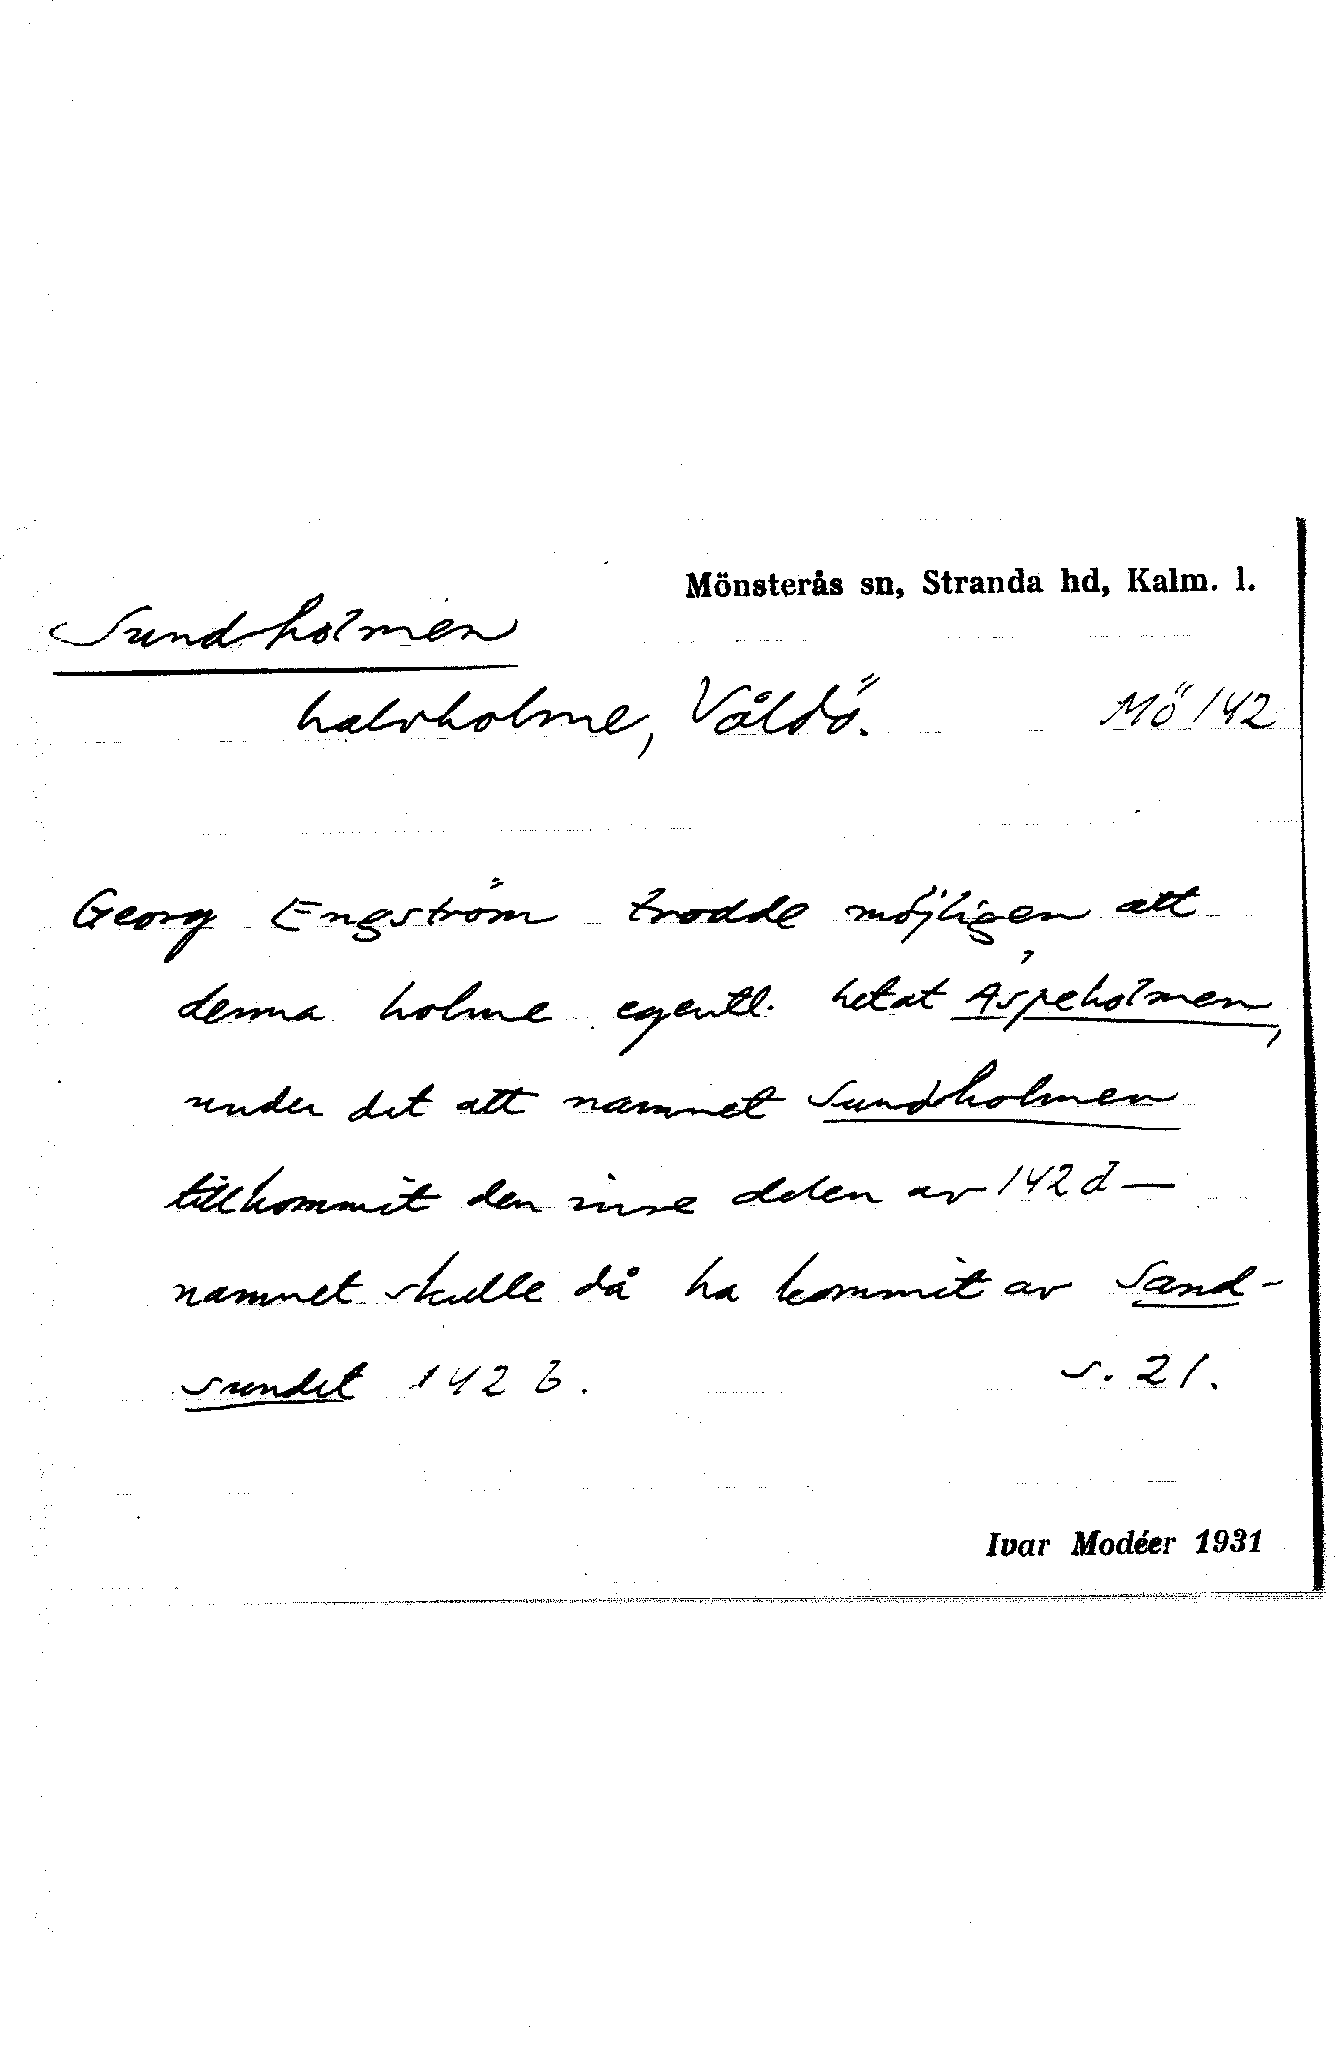 Mönsterås sn, Stranda hd, Kalm. l.
Sundholmen
halvholme, Våldö.  Mö 142
Georg Engström trodde möjligen att
denna holme egentl. hetat Aspeholmen,
under det att namnet Sundholmen
tillkommit den inre delen av 142 d —
namnet skulle då ha kommit av Sand-
sundet 142 b.  s. 21.
Ivar Modéer 1931